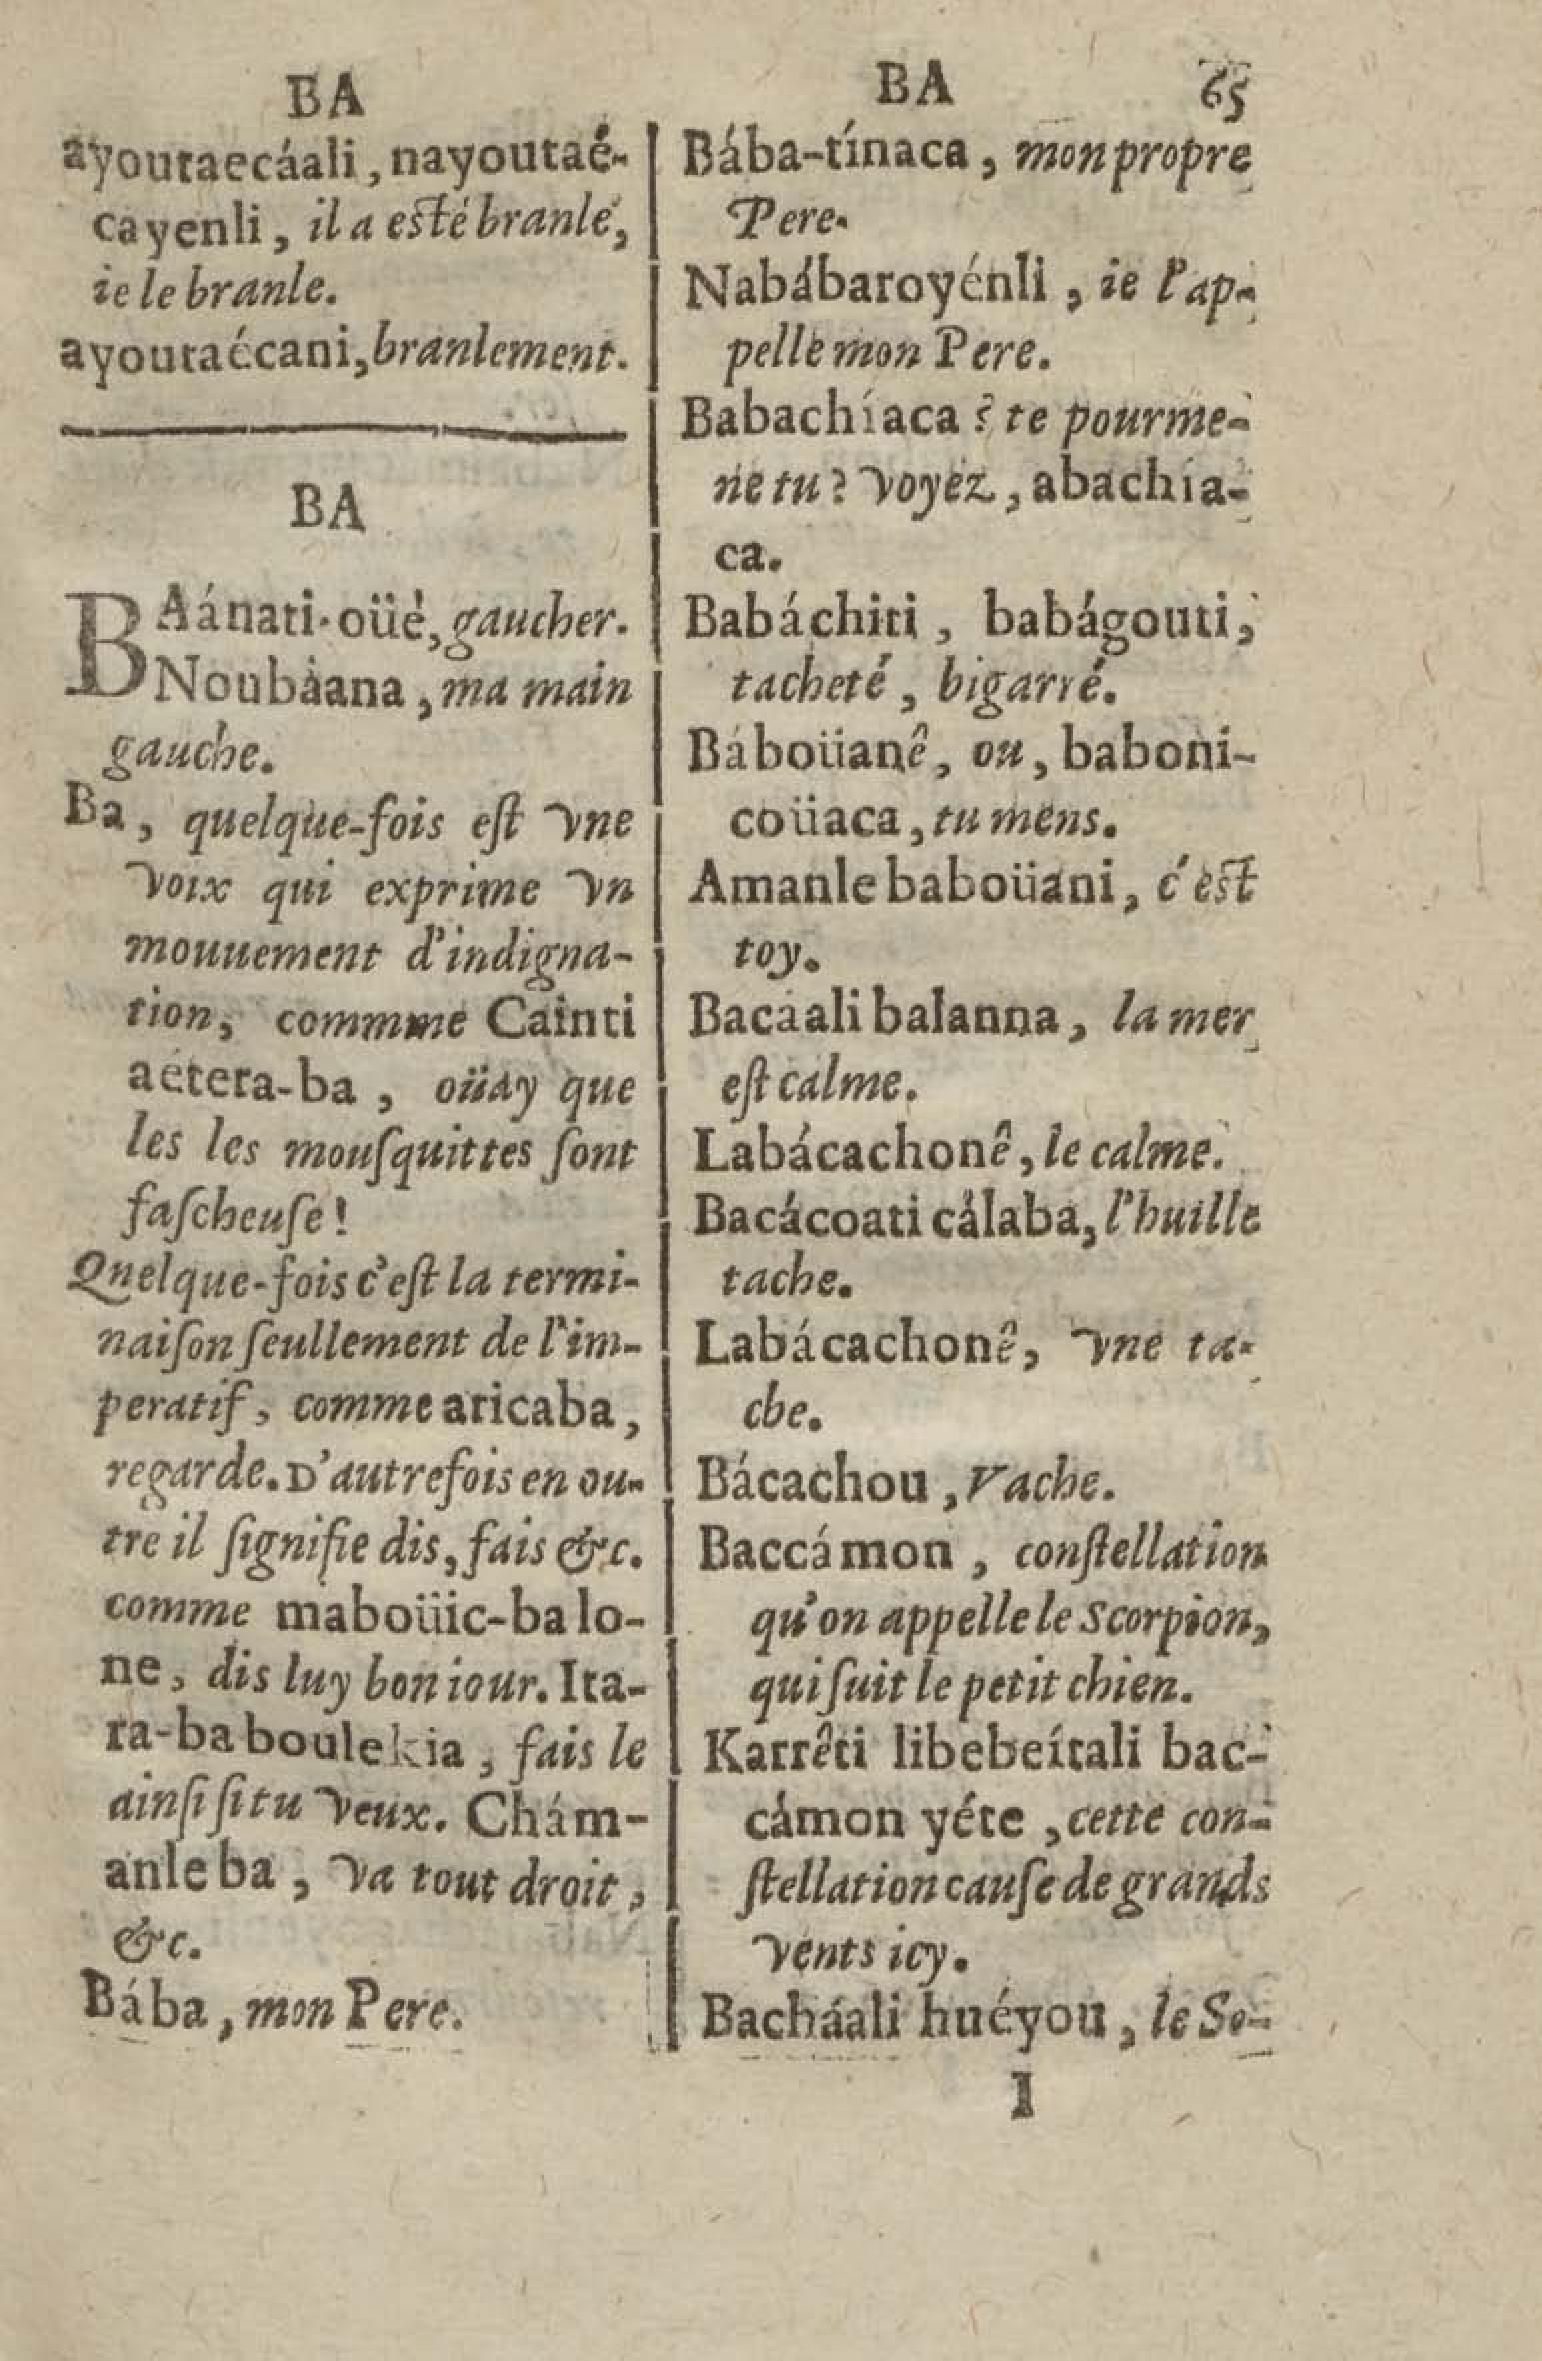 BA
ayoutaecáali, nayoutaé-
cayenli, il a esté branlé,
ie le branle.
ayoutaécani, branlement.
BA
BAánati-oüé, gaucher.
Noubáana, ma main
gauche.
Ba, quelque-fois eſt vne
voix qui exprime vn
mouuement d'indigna-
tion, commme Cainti
aétera-ba, oüay que
les les mouſquittes ſont
faſcheuſe!
Quelque-fois c'eſt la termi-
naiſon ſeullement de l'im-
peratif, comme aricaba,
regarde. D'autrefois en ou-
tre il ſignifie dis, fais &c.
comme maboüic-ba lo-
ne, dis luy bon iour. Ita-
ra-ba boulekia, fais le
ainſi ſi tu veux. Chám-
anle ba, va tout droit,
&c.
Bába, mon Pere.
BA 65
Bába-tínaca, mon propre
Pere.
Nabábaroyénli, ie l'ap-
pelle mon Pere.
Babachíaca? te pourme-
ne tu? voyez, abachía-
ca.
Babáchiti, babágouti,
tacheté, bigarré.
Báboüianê, ou, baboni-
coüiaca, tu mens.
Amanle baboüiani, c'est
toy.
Bacáali balanna, la mer
eſt calme.
Labácachonê, le calme.
Bacácoati cálaba, l'huille
tache.
Labácachonê, vne ta-
che.
Bácachou, Vache.
Baccámon, conſtellation
qu'on appelle le Scorpion,
qui ſuit le petit chien.
Karrêti libebeítali bac-
cámon yéte, cette con-
ſtellation cauſe de grands
vents icy.
Bacháali huéyou, le So-
I